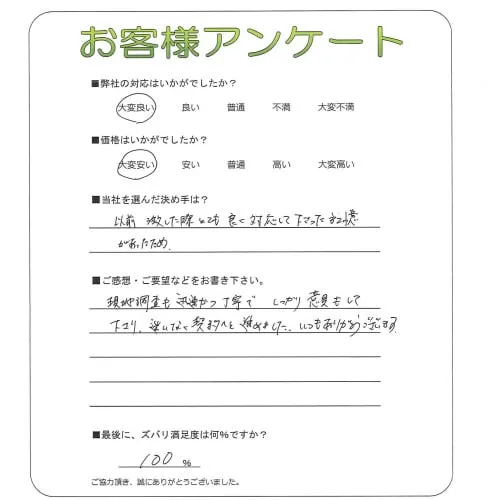 お客様アンケート
■弊社の対応はいかがでしたか?
大変良い 良い 普通 不満 大変不満
■価格はいかがでしたか?
大変安い 安い 普通 高い 大変高い
■当社を選んだ決め手は?
以前 した際とても良く対応して下さった記憶
があったため。
■ご感想・ご要望などをお書き下さい。
現地調査も迅速かつ丁寧で しっかり意見もして
下さり、迷いなく契約へと進めました。いつもありがとうございます
■最後に、ズバリ満足度は何%ですか?
100 %
ご協力頂き、誠にありがとうございました。